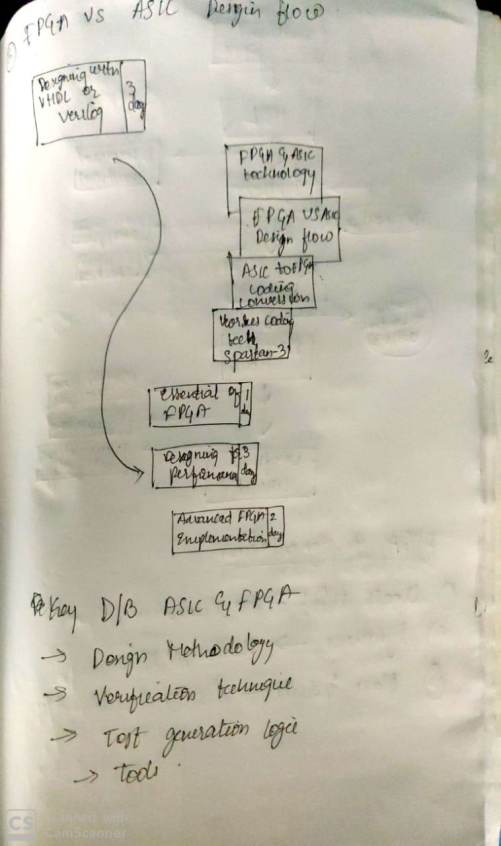 ① FPGA VS ASIC Design flow
Designing with
VHDL or
verilog
3
day
FPGA & ASIC
technology
FPGA VS ASIC
Design flow
ASIC to FPGA
coding
conversion
coding
tech
Spartan-3
Essential of
FPGA
1
day
Designing for
performance
3
day
Advanced FPGA
Implementation
2
day
Key D/B ASIC & FPGA
→ Design Methodology
→ Verification technique
→ Test generation logic
→ Tools
CS Scanned with
CamScanner